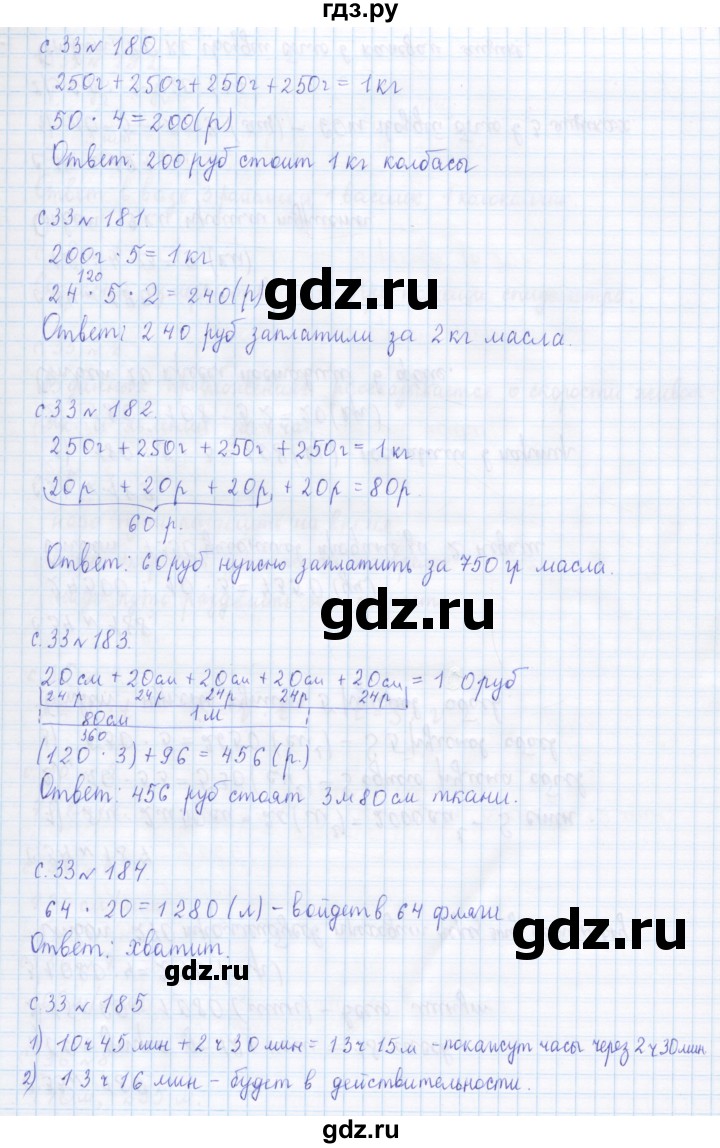 гдз.ру
с.33 № 180.
250г + 250г + 250г + 250г = 1 кг
50 · 4 = 200 (р)
Ответ: 200 руб стоит 1 кг колбасы
с.33 № 181.
200г · 5 = 1 кг
120
24 · 5 · 2 = 240 (р)
gdz.ru
Ответ: 240 руб заплатили за 2 кг масла.
с.33 № 182.
250г + 250г + 250г + 250г = 1 кг
20р + 20р + 20р + 20р = 80р.
60 р.
Ответ: 60 руб нужно заплатить за 750 гр масла.
gdz.ru
с.33 № 183.
20 см + 20 см + 20 см + 20 см + 20 см = 1 0 руб
24р 24р 24р 24р 24р
80 см 1 м
360
(120 · 3) + 96 = 456 (р.)
Ответ: 456 руб стоят 3 м 80 см ткани.
с.33 № 184
64 · 20 = 1280 (л) - войдет в 64 фляги
Ответ: хватит.
gdz.ru
gdz.ru
с 33 № 185
1) 10ч 45 мин + 2 ч 30 мин = 13ч 15 м - покажут часы через 2 ч 30 мин
2) 13 ч 16 мин - будет в действительности.
gdz.ru
gdz.ru